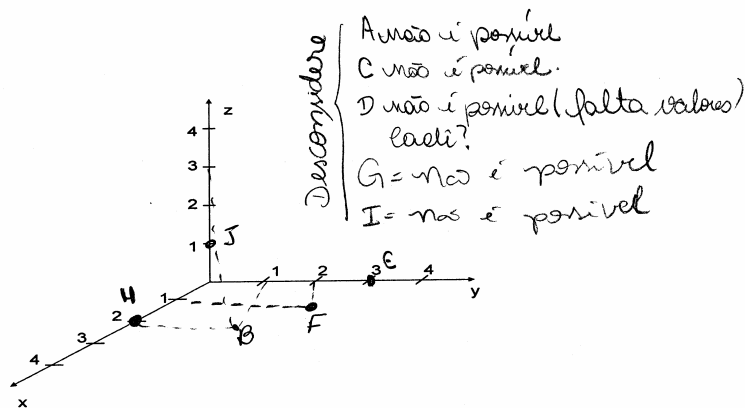 Desconsidere
A não é possível
C não é possível.
D não é possível (falta valores)
cadê?
G = não é possível
I = não é possível
z
4
3
2
1
J
1
2
3
E
4
y
H
1
2
3
4
x
B
F